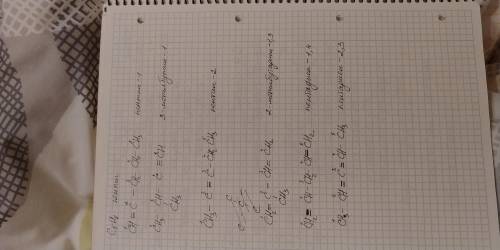 CH ≡ C - CH₂ - CH₂ - CH₃ пентин-1
CH₃ - CH - C ≡ CH 3-метилбутин-1
CH₃
CH₃ - C ≡ C - CH₂ CH₃ пентин-2
C - C -
C C
CH₂ = C - CH = CH₂ 2-метилбутадиен-1,3
CH₃
CH₂ = CH - CH₂ - CH = CH₂ пентадиен-1,4
CH₃ - CH = C = CH - CH₃ пентадиен-2,3